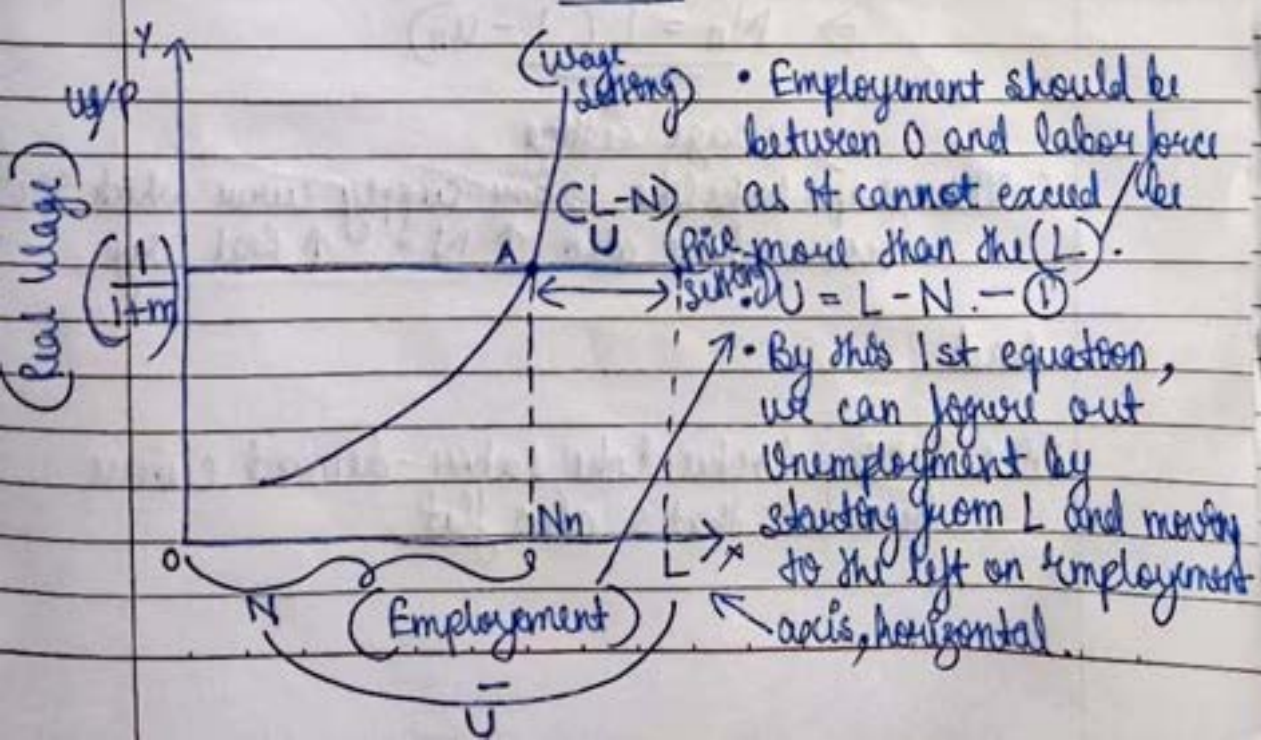 Y
W/P
(Real Wage)
(1/1+m)
(Wage setting)
A
(L-N)
U
(Price setting)
Nn
O
L
x
N
(Employement)
U
• Employement should be
between 0 and labor force
as it cannot exceed / be
more than the (L).
• U = L - N. - ①
• By this 1st equation,
we can figure out
Unemployment by
starting from L and moving
to the left on employement
axis, horizontal.